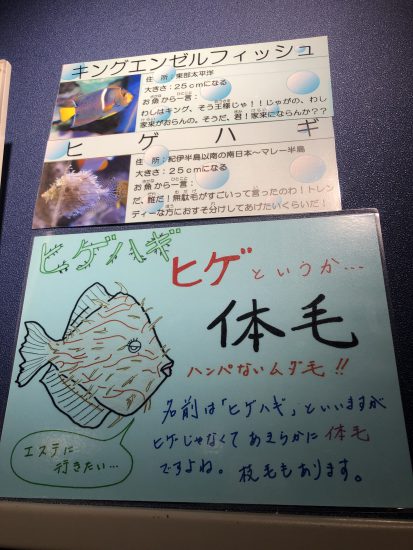 キングエンゼルフィッシュ
住 所：東部太平洋
大きさ：25cmになる
お魚から一言：
わしはキング、そう王様じゃ！！じゃがの、わし
家来がおらんの。そうだ、君！家来にならんか？？
ヒゲハギ
住 所：紀伊半島以南の南日本～マレー半島
大きさ：25cmになる
お魚から一言：
だ、誰だ！無駄毛がすごいって言ったのわ！トレン
ディーな方におすそ分けしてあげたいくらいだ！
ヒゲハギ
ヒゲというか…
体毛
ハンパないムダ毛!!
名前は「ヒゲハギ」といいますが
ヒゲじゃなくてあきらかに体毛
ですよね。枝毛もあります。
エステに
行きたい…